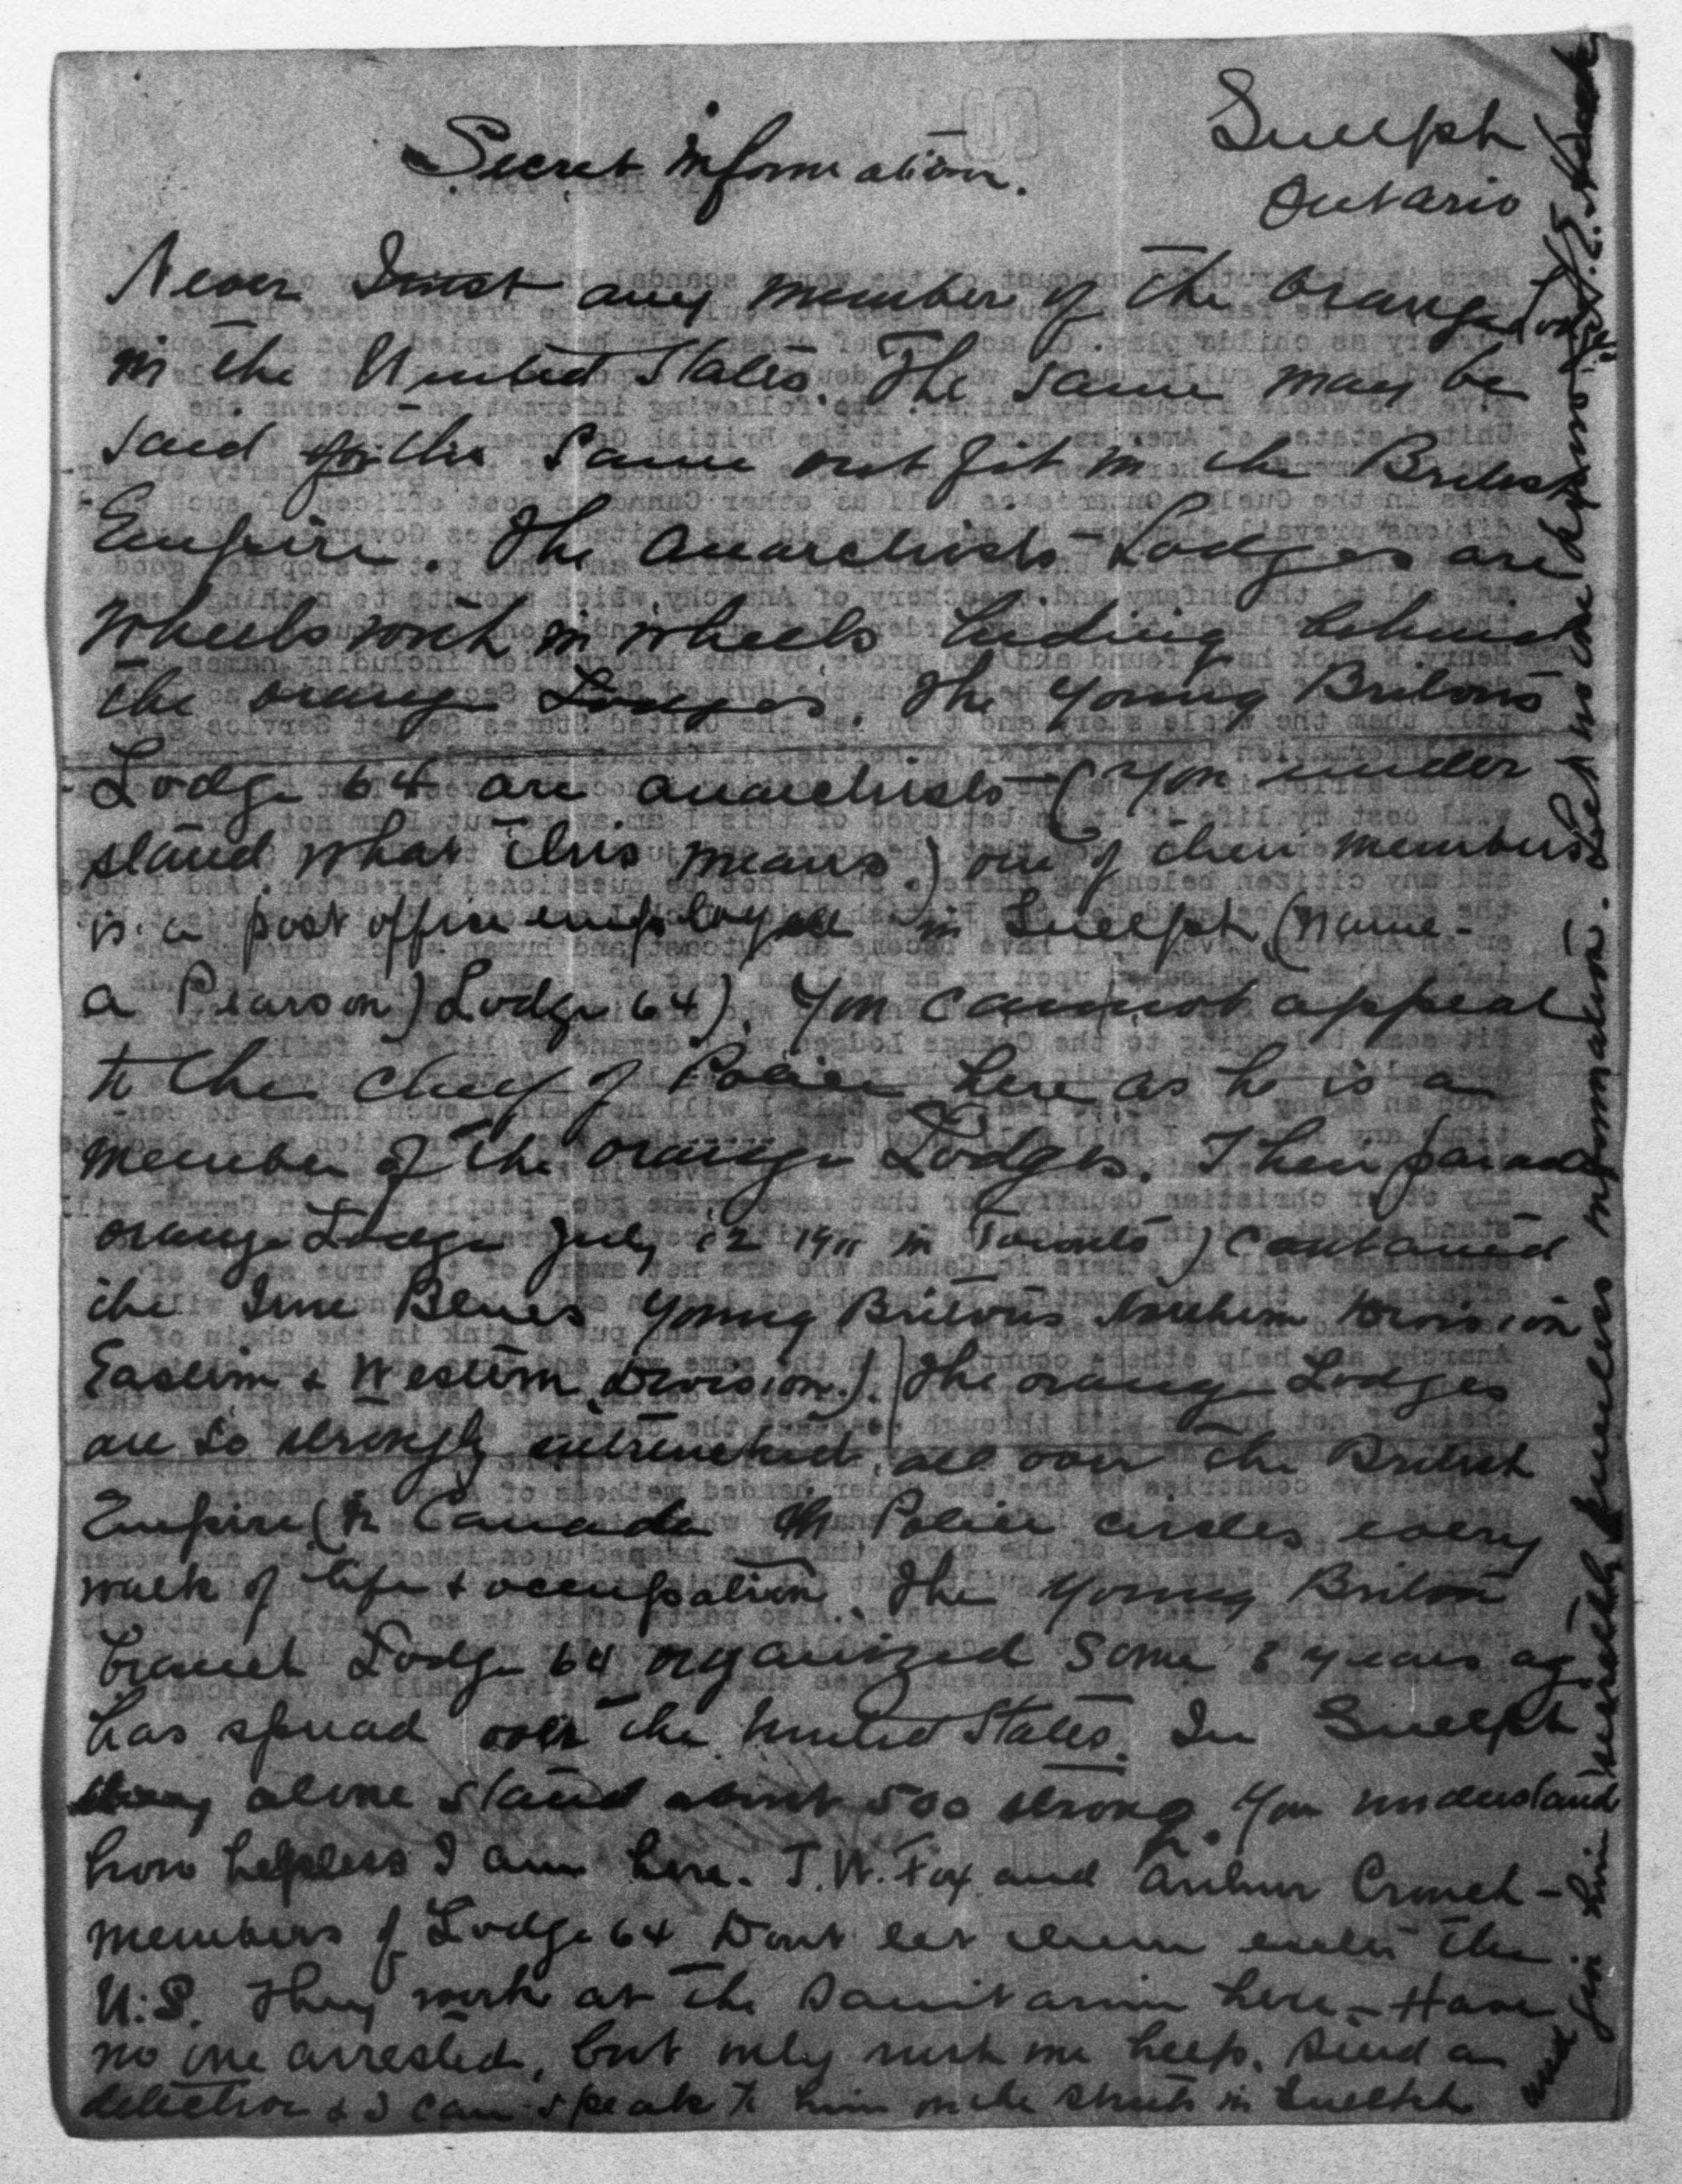 Secret information.
Guelph
Ontario
Never Trust any member of the Orange Lodge
in the United States. The same may be
said of the same outfit in the British
Empire. The Anarchists Lodges are
Wheels with in wheels hiding behind
the orange Lodges. The Young Britons
Lodge 64 are anarchists (You under
stand what this means.) one of their members
is a post office employee in Guelph (name -
a Pearson) Lodge 64). You cannot appeal
to the chief of Police here as he is a
member of the orange Lodges. Their parade
orange Lodge July 12 1911 in Toronto) contained
the True Blues Young Britons Northern Division
Eastern & Western Division.). The orange Lodges
are so strongly entrenched all over the British
Empire (in Canada in Police circles every
walk of life & occupation. The Young Briton
branch Lodge 64 organized some 8 years ago
has spread over the United States. In Guelph
they alone stand about 500 strong. You understand
how helpless I am here. J. W. Fox and Arthur Crouch -
members of Lodge 64 Dont let them enter the
U.S. They work at the Sanitarium here - Have
no one arrested, but only rush me help. Send a
detective & I can speak to him on the streets in Guelph
and give him secretly priceless information. Let no one know